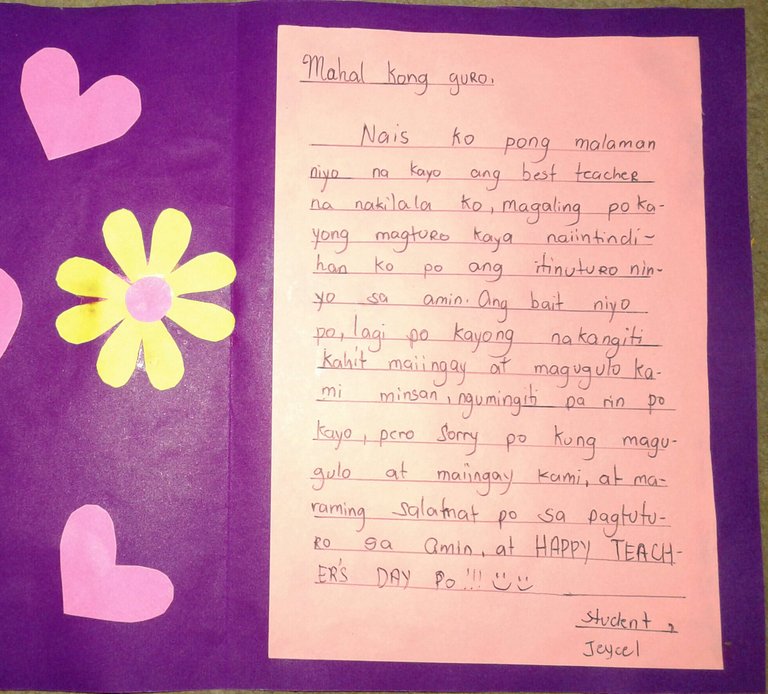 Mahal kong guro,
Nais ko pong malaman
niyo na kayo ang best teacher
na nakilala ko, magaling po ka-
yong magturo kaya naiintindi-
han ko po ang itinuturo nin-
yo sa amin. Ang bait niyo
po, lagi po kayong nakangiti
kahit maiingay at magugulo ka-
mi minsan, ngumingiti pa rin po
kayo, pero Sorry po kung magu-
gulo at maiingay kami, at ma-
raming salamat po sa pagtutu-
ro sa amin, at HAPPY TEACH-
ER'S DAY po!!!
student,
Jeycel